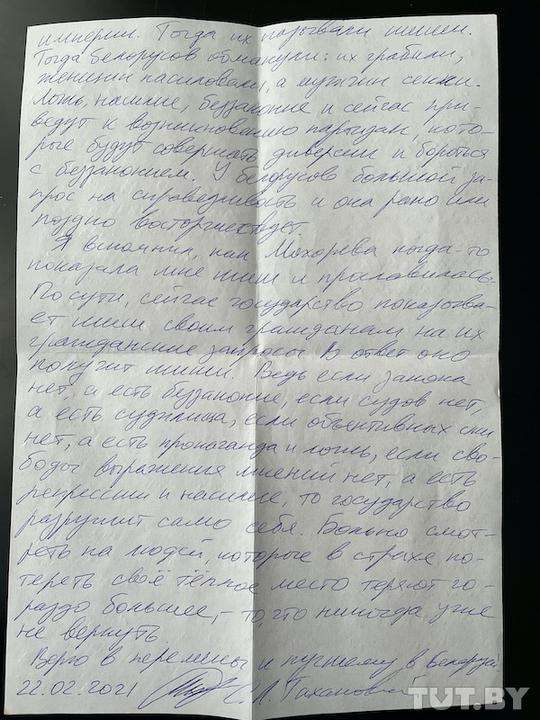 империи. Тогда их называли шиши.
Тогда белорусов обманули: их грабили,
женщин насиловали, а мужчин секли.
Ложь, насилие, беззаконие и сейчас при-
ведут к возникновению партизан, кото-
рые будут совершать диверсии и бороться
с беззаконием. У белорусов большой за-
прос на справедливость и она рано или
поздно восторжествует.
Я вспомнил, как Махорева когда-то
показала мне шиш и прославилась.
По сути, сейчас государство показыва-
ет шиш своим гражданам на их
гражданские запросы. В ответ оно
получит шиши. Ведь если закона
нет, а есть беззаконие, если судов нет,
а есть судилища, если объективных сми
нет, а есть пропаганда и ложь, если сво-
боды выражения мнений нет, а есть
репрессии и насилие, то государство
разрушит само себя. Больно смот-
реть на людей, которые в страхе по-
терять своё тёплое место теряют го-
раздо большее, – то, что никогда уже
не вернуть.
Верю в перемены к лучшему в Беларуси
22.02.2021 С. Л. Тихановский
TUT.BY